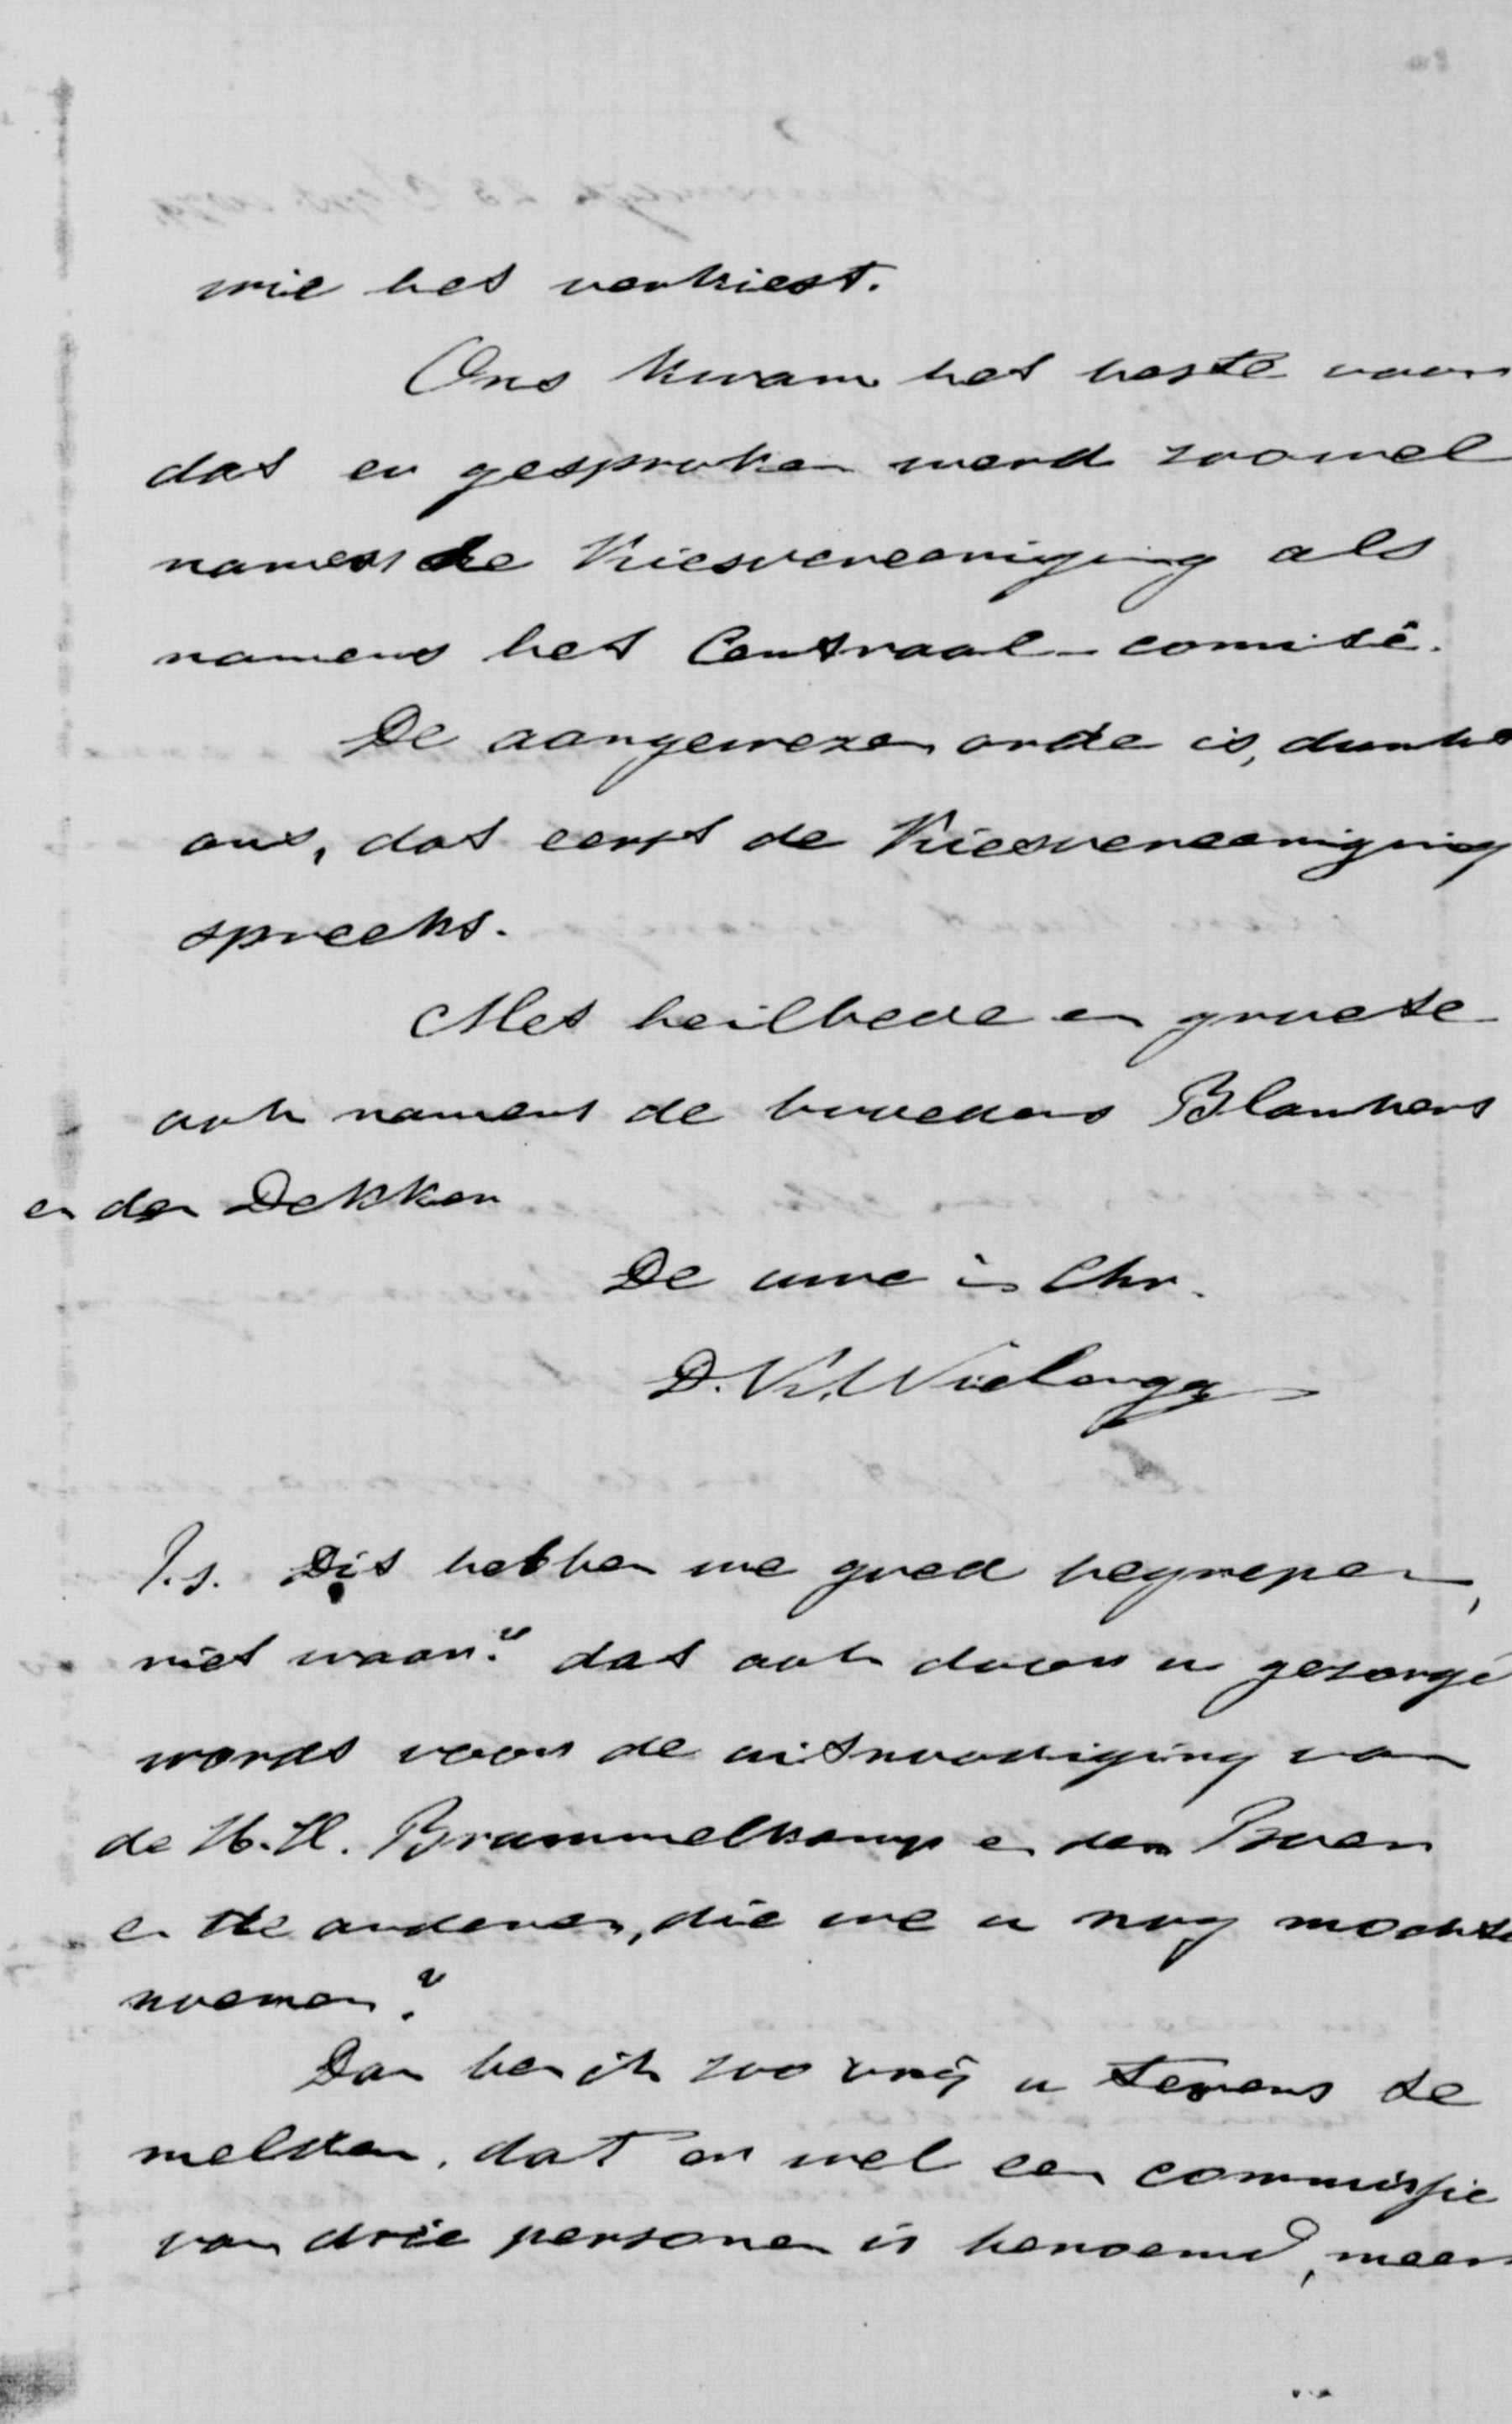 wie het verkiest.
Ons kwam het beste voor
dat er gesproken werd zoowel
namens de Kiesvereeniging als
namens het Centraal-comité.
De aangewezen orde is, dunkt
ons, dat eerst de Kiesvereeniging
spreekt.
Met heilbede en groete
ook namens de broeders Blankers
en den Dekker
De uwe in Chr.
D. K. Wielenga
P.s. Dit hebben we goed begrepen,
niet waar? dat ook door u gezorgd
wordt voor de uitnoodiging van
de H.H. Brummelkamp en den Boer
en de anderen, die we u nog mochten
noemen?
Dan ben ik zoo vrij u tevens te
melden, dat er wel een commissie
van drie personen is benoemd, meer